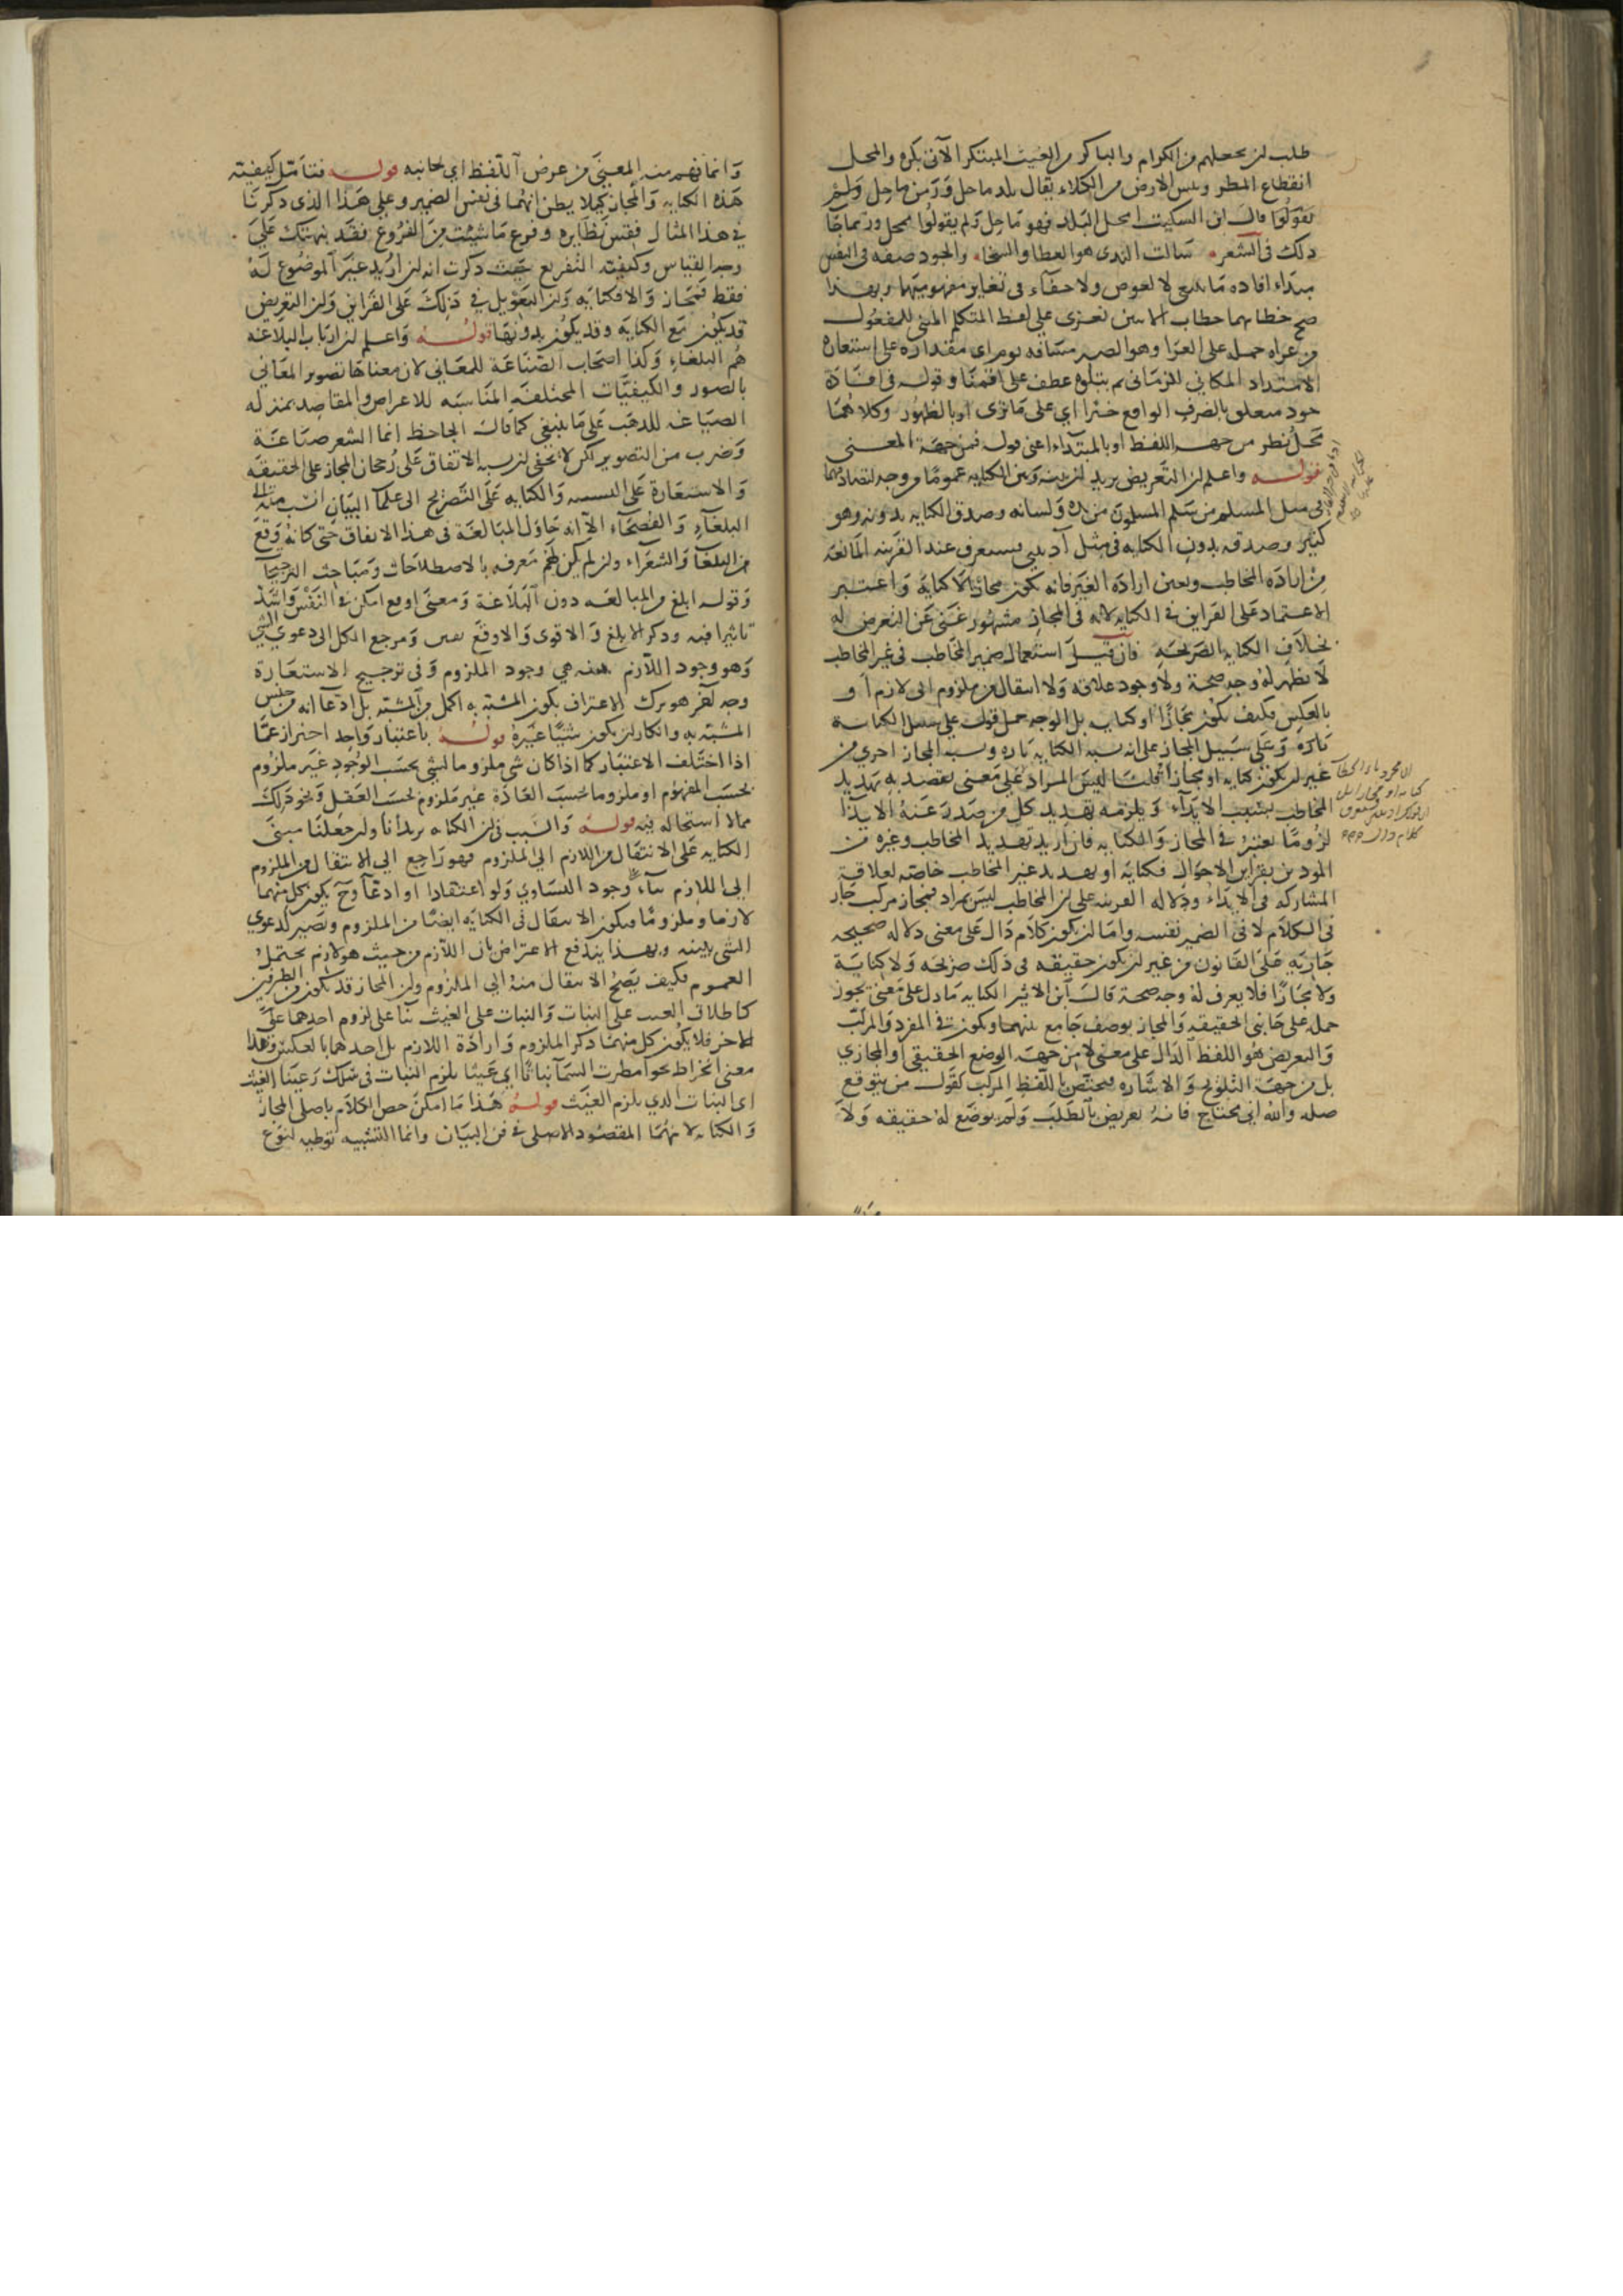 طلب ان يجعلهم من الكرام والباكر من الغيث المبتكر الآتى بكرة والمحل
انقطاع المطر ويبس الارض من الكلاء يقال بلد ماحل وزمن ماحل ولم
يقولوا قال ابن السكيت امحل البلد فهو ماحل ولم يقولوا ممحل وربما جا
ذلك فى الشعر سالت الندى هو العطا والسخا والجود صفه فى النفس
مبداء افاده ما ينبغي لا لعوض ولا خفاء فى تغاير مفهوميهما وبهذا
صح خطابهما خطاب الاثنين تعزى على لفظ المتكلم المبنى للمفعول
من عزاه حمله على العزا وهو الصبر مسافه يوم اى مقداره على استعارة
الامتداد المكانى للزمانى ثم يتلوه عطف على اقمنا وقوله فى افادة
جود متعلق بالضرف الواقع خبرا اي على ما ترى او بالظهور وكلاهما
محل نظر من جهه اللفظ او بالمبتداء اعنى قوله فمن جهة المعنى
قوله واعلم ان التعريض يريد ان بينه وبين الكنايه عموما من وجه لتصادقهما
فى مثل المسلم من سلم المسلمون من يده ولسانه وصدق الكنايه بدونه وهو
كثير وصدقه بدون الكنايه فى مثل آذيتنى فستعرف عند القرينه المانعه
من اراده المخاطب وتعين ارادة الغير فانه يكون مجازا لا كنايه واعتبر
الاعتماد على القراين فى الكنايه لانه فى المجاز مشهور غنى عن التعرض له
بخلاف الكنايه الصريحه فان قيل استعمال ضمير المخاطب فى غير المخاطب
لا نظهر له وجه صحة ولا وجود علاقه ولا انتقال من ملزوم الى لازم او
بالعكس فكيف يكون مجازا او كنايه بل الوجه حمل قوله على سبيل الكناية
تارة وعلى سبيل المجاز على انه يشبه الكنايه تاره ويشبه المجاز اخرى من
غير ان يكون كنايه او مجازا قلنا ليس المراد على معنى يقصد به تهديد
المخاطب بسبب الايذاء ويلزمه تهديد كل من صدر عنه الايذا
لزوما يعتبر فى المجاز والكنايه فان اريد تهديد المخاطب وغيره من
الموذين بقراين الاحوال فكناية او تهديد غير المخاطب خاصه لعلاقة
المشاركه فى الايذاء ودلاله القرينه على ان المخاطب ليس بمراد فمجاز مركب جار
فى الكلام لا فى الضمير نفسه واما ان يكون كلام دال على معنى دلاله صحيحه
جاريه على القانون من غير ان يكون حقيقه فى ذلك صريحه ولا كناية
ولا مجازا فلا يعرف له وجه صحة قال ابن الاثير الكنايه ما دل على معنى يجوز
حمله على جانبى الحقيقه والمجاز بوصف جامع بينهما ويكون فى المفرد والمركب
والتعريض هو اللفظ الدال على معنى لا من جهة الوضع الحقيقى او المجازي
بل من جهة التلويح والاشاره فيختص باللفظ المركب كقول من يتوقع
صله والله انى محتاج فانه تعريض بالطلب ولم يوضع له حقيقه ولا
وانما فهم منه المعنى من عرض اللفظ اي جانبه قوله فتامل كيفيته
هذه الكنايه والمجاز كيلا يظن انهما فى نفس الضمير وعلى هذا الذى ذكرنا
فى هذا المثال فقس نظايره وفرع ما شيت من الفروع فقد نبهتك على
وجه القياس وكيفيه التفريع حيث ذكرت انه ان اريد غير الموضوع له
فقط فمجاز والا فكنايه وان التعويل فى ذلك على القراين وان التعريض
قد يكون مع الكنايه وقد يكون بدونها قوله واعلم ان ارباب البلاغه
هم البلغاء وكذا اصحاب الصناعة للمعانى لان معناها تصوير المعانى
بالصور والكيفيات المختلفه المناسبه للاعراض والمقاصد بمنزله
الصياغه للذهب على ما ينبغى كما قال الجاحظ انما الشعر صناعة
وضرب من التصوير لكن لا يخفى ان نسبه الاتفاق على رجحان المجاز على الحقيقه
والاستعارة على التشبيه والكنايه على التصريح الى علما البيان انسب منه الى
البلغاء والفصحاء الا انه حاول المبالغة فى هذا الاتفاق حتى كانه وقع
من البلغا والشعراء وان لم يكن لهم معرفه بالاصطلاحات ومباحث الترجيحات
وقوله ابلغ من المبالغه دون البلاغة ومعنى اوقع امكن فى النفس واشد
تاثيرا فيه وذكر الابلغ والاقوى والاوقع تفنن ومرجع الكل الى دعوى الشى
وهو وجود اللازم ببينه هي وجود الملزوم وفى ترجيح الاستعارة
وجه اخر هو ترك الاعتراف بكون المشبه به اكمل من المشبه بل ادعا انه من جنس
المشبه به وانكار ان يكون شيئا غيره قوله باعتبار واحد احتراز عما
اذا اختلف الاعتبار كما اذا كان شى ملزوما لشى بحسب الوجود غير ملزوم
بحسب المفهوم او ملزوما بحسب العادة غير ملزوم بحسب العقل ونحو ذلك
مما لا استحاله فيه قوله والسبب فى ان الكنايه يريد أنا وان جعلنا مبنى
الكنايه على الانتقال من اللازم الى الملزوم فهو راجع الى الانتقال من الملزوم
الى اللازم بناء على وجود التساوى ولو اعتقادا او ادعآ وح يكون كل منهما
لازما وملزوما ويكون الانتقال فى الكنايه ايضا من الملزوم وتصير كدعوي
الشى ببينه وبهذا يندفع الاعتراض بان اللازم من حيث هو لازم يحتمل
العموم فكيف يصح الانتقال منه الى الملزوم وان المجاز قد يكون من الطرفين
كاطلاق الغيث على النبات والنبات على الغيث بنا على لزوم احدهما على
الاخر فلا يكون كل منهما ذكر الملزوم وارادة اللازم بل احدهما بالعكس وهذا
معنى انخراط نحو امطرت السما نباتا اي غيثا يلزم النبات فى سلك رعينا الغيث
اى النبات الذي يلزم الغيث قوله هذا ما امكن حصر الكلام باصلى المجاز
والكنايه لانهما المقصود الاصلى فى فن البيان وانما التشبيه توطيه لنوع